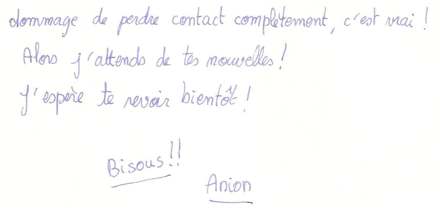 dommage de perdre contact complètement, c'est vrai !
Alors j'attends de tes nouvelles !
J'espère te revoir bientôt !
Bisous !!
Anion